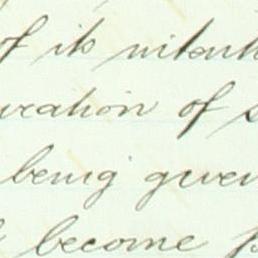 of its intent
uration of s
being given
become